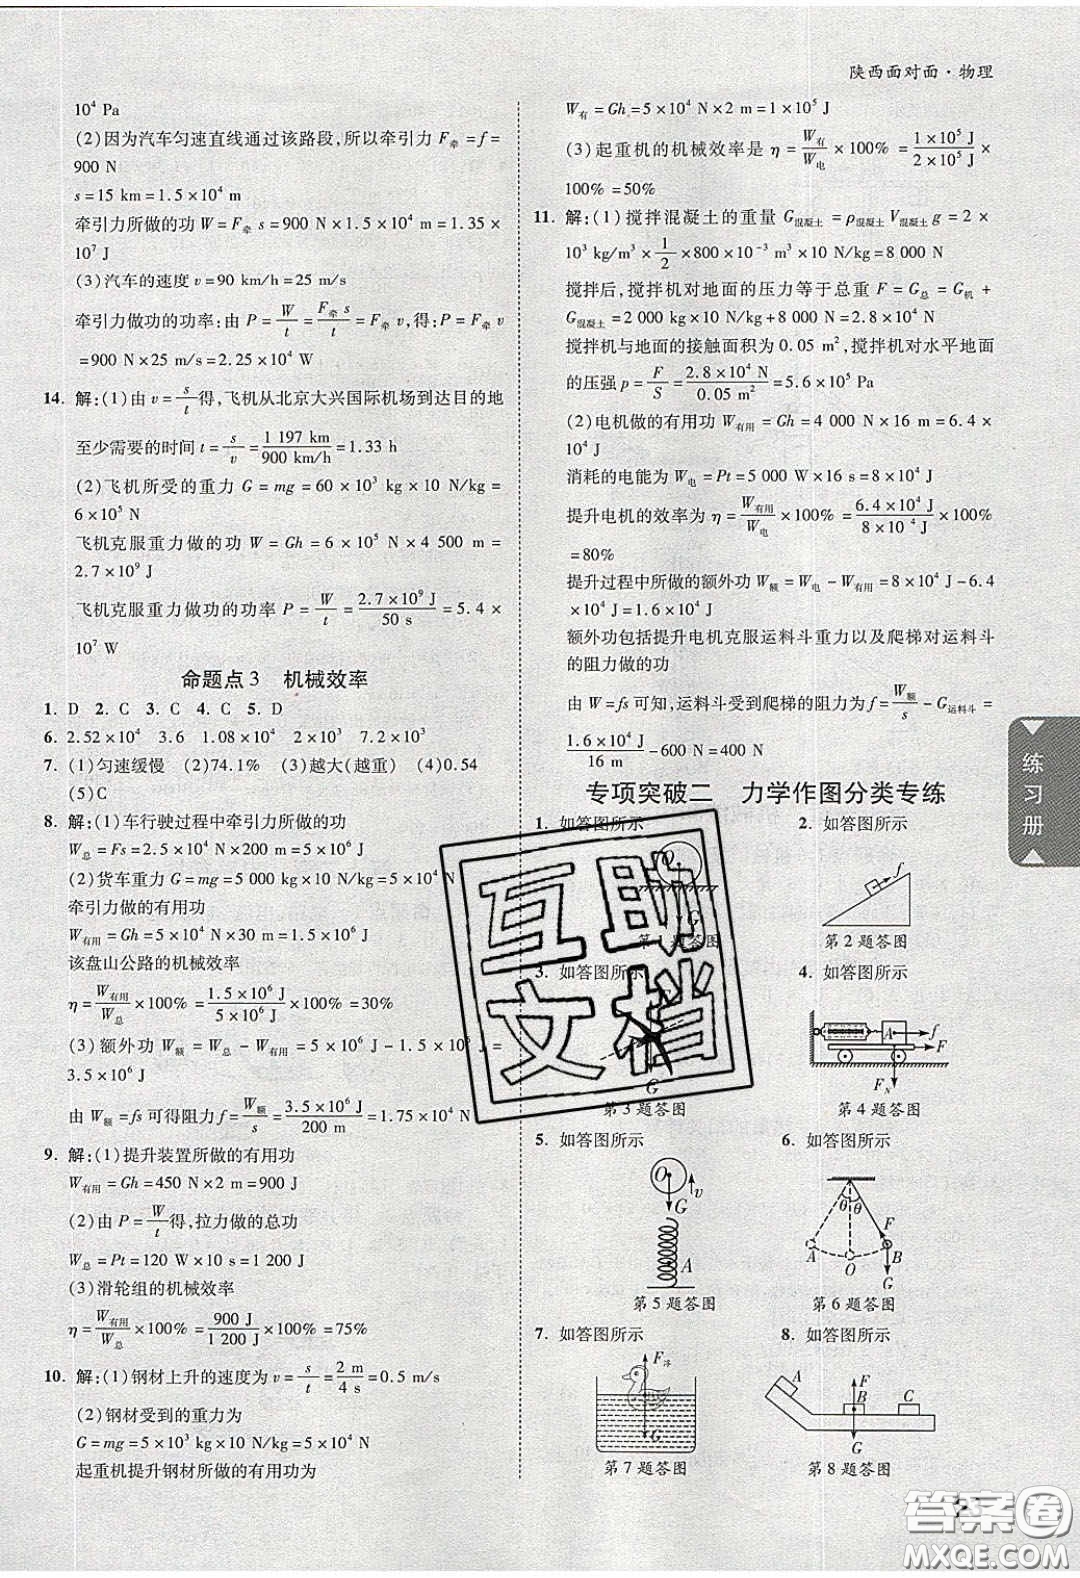 陕西面对面·物理
10⁴ Pa
(2)因为汽车匀速直线通过该路段,所以牵引力 F牵=f=
900 N
s=15 km=1.5×10⁴ m
牵引力所做的功 W=F牵 s=900 N×1.5×10⁴ m=1.35×
10⁷ J
(3)汽车的速度 v=90 km/h=25 m/s
牵引力做功的功率:由 P=W/t=F牵 s/t=F牵 v,得:P=F牵 v
=900 N×25 m/s=2.25×10⁴ W
14. 解:(1)由 v=s/t得,飞机从北京大兴国际机场到达目的地
至少需要的时间 t=s/v=1 197 km/900 km/h=1.33 h
(2)飞机所受的重力 G=mg=60×10³ kg×10 N/kg=
6×10⁵ N
飞机克服重力做的功 W=Gh=6×10⁵ N×4 500 m=
2.7×10⁹ J
飞机克服重力做功的功率 P=W/t=2.7×10⁹ J/50 s=5.4×
10⁷ W
命题点3 机械效率
1. D 2. C 3. C 4. C 5. D
6. 2.52×10⁴ 3.6 1.08×10⁴ 2×10³ 7.2×10³
7. (1)匀速缓慢 (2)74.1% (3)越大(越重) (4)0.54
(5)C
8. 解:(1)车行驶过程中牵引力所做的功
W总=Fs=2.5×10⁴ N×200 m=5×10⁶ J
(2)货车重力 G=mg=5 000 kg×10 N/kg=5×10⁴ N
牵引力做的有用功
W有用=Gh=5×10⁴ N×30 m=1.5×10⁶ J
该盘山公路的机械效率
η=W有用/W总×100%=1.5×10⁶ J/5×10⁶ J×100%=30%
(3)额外功 W额=W总-W有用=5×10⁶ J-1.5×10⁶ J=
3.5×10⁶ J
由 W额=fs 可得阻力 f=W额/s=3.5×10⁶ J/200 m=1.75×10⁴ N
9. 解:(1)提升装置所做的有用功
W有用=Gh=450 N×2 m=900 J
(2)由 P=W/t得,拉力做的总功
W总=Pt=120 W×10 s=1 200 J
(3)滑轮组的机械效率
η=W有用/W总×100%=900 J/1 200 J×100%=75%
10. 解:(1)钢材上升的速度为 v=s/t=2 m/4 s=0.5 m/s
(2)钢材受到的重力为
G=mg=5×10³ kg×10 N/kg=5×10⁴ N
起重机提升钢材所做的有用功为
W有=Gh=5×10⁴ N×2 m=1×10⁵ J
(3)起重机的机械效率是 η=W有/W电×100%=1×10⁵ J/2×10⁵ J×
100%=50%
11. 解:(1)搅拌混凝土的重量 G混凝土=ρ混凝土 V混凝土 g=2×
10³ kg/m³×1/2×800×10⁻³ m³×10 N/kg=8 000 N
搅拌后,搅拌机对地面的压力等于总重 F=G总=G机+
G混凝土=2 000 kg×10 N/kg+8 000 N=2.8×10⁴ N
搅拌机与地面的接触面积为 0.05 m²,搅拌机对水平地面
的压强 p=F/S=2.8×10⁴ N/0.05 m²=5.6×10⁵ Pa
(2)电机做的有用功 W有用=Gh=4 000 N×16 m=6.4×
10⁴ J
消耗的电能为 W电=Pt=5 000 W×16 s=8×10⁴ J
提升电机的效率为 η=W有用/W电×100%=6.4×10⁴ J/8×10⁴ J×100%
=80%
提升过程中所做的额外功 W额=W电-W有用=8×10⁴ J-6.4
×10⁴ J=1.6×10⁴ J
额外功包括提升电机克服运料斗重力以及爬梯对运料斗
的阻力做的功
由 W=fs 可知,运料斗受到爬梯的阻力为 f=W额/s-G运料斗=
1.6×10⁴ J/16 m-600 N=400 N
练习册
专项突破二 力学作图分类专练
1. 如答图所示 2. 如答图所示
O
G
f
第1题答图 第2题答图
3. 如答图所示 4. 如答图所示
G
A f
F
F_N
第3题答图 第4题答图
5. 如答图所示 6. 如答图所示
O G v
A
θ θ
F
A O B
G
第5题答图 第6题答图
7. 如答图所示 8. 如答图所示
F浮
G
A F B C
G
第7题答图 第8题答图
互助
文档
答案圈
MXQE.COM